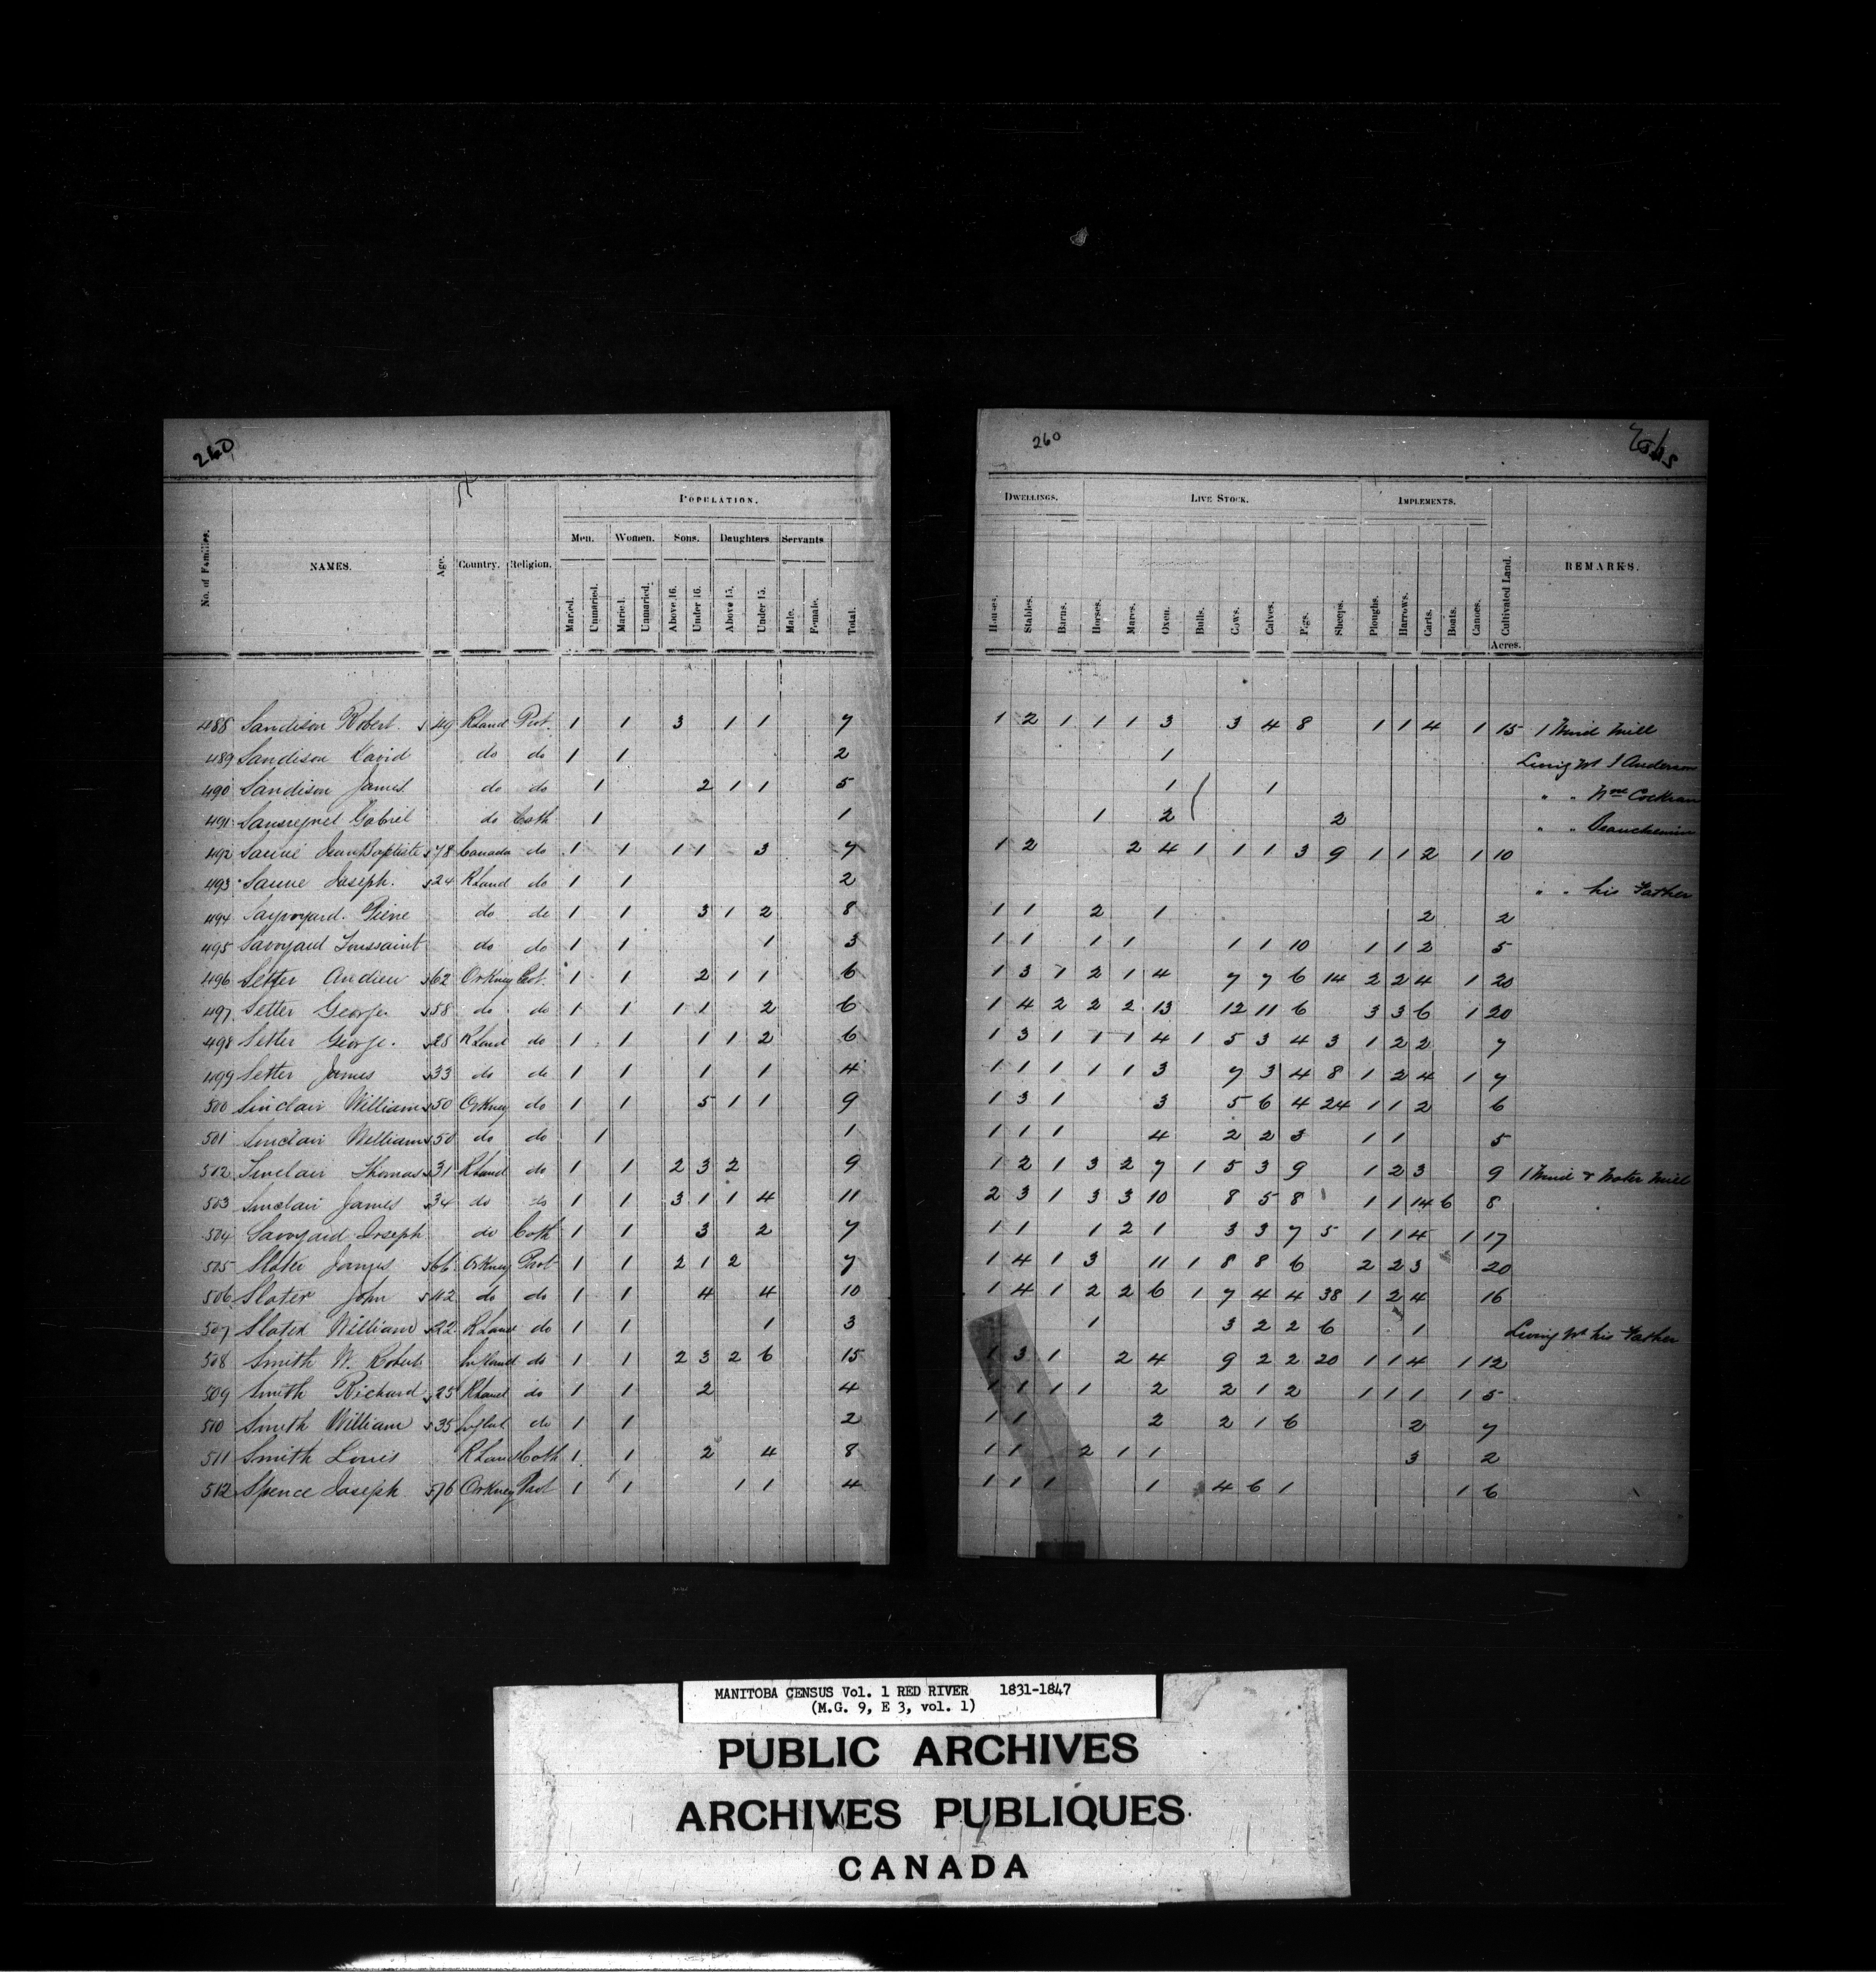 260
POPULATION.
Men. Women. Sons. Daughters Servants
No. of Families. NAMES. Age. Country. Religion. Married. Unmaried. Married. Unmaried. Above 16. Under 16. Above 15. Under 15. Male. Female. Total.
488 Sandison Robert 49 RLand Prot. 1 1 3 1 1 7
489 Sandison David do do 1 1 2
490 Sandison James do do 1 2 1 1 5
491 Gabriel do Cath 1 1
492 Jean Baptiste 78 Canada do 1 1 1 1 3 7
493 Joseph. 24 RLand do 1 1 2
494 Pierre do do 1 1 3 1 2 8
495 Savoyard Toussaint do do 1 1 1 3
496 Setter Andrew 62 Orkney Prot. 1 1 2 1 1 6
497 Setter George 58 do do 1 1 1 1 2 6
498 Setter George. 28 RLand do 1 1 1 1 2 6
499 Setter James 33 do do 1 1 1 1 4
500 Sinclair William 50 Orkney do 1 1 5 1 1 9
501 Sinclair William 50 do do 1 1
502 Sinclair Thomas 31 RLand do 1 1 2 3 2 9
503 Sinclair James 34 do do 1 1 3 1 1 4 11
504 Savoyard Joseph do Cath 1 1 3 2 7
505 Slater James 66 Orkney Prot 1 1 2 1 2 7
506 Slater John 42 do do 1 1 4 4 10
507 Slater William 22 RLand do 1 1 1 3
508 Smith W. Robert England do 1 1 2 3 2 6 15
509 Smith Richard 25 RLand do 1 1 2 4
510 Smith William 35 do 1 1 2
511 Smith Louis RLand Cath 1 1 2 4 8
512 Spence Joseph 76 Orkney Prot 1 1 1 1 4
260
DWELLINGS. LIVE STOCK. IMPLEMENTS.
Houses. Stables. Barns. Horses. Mares. Oxen. Bulls. Cows. Calves. Pigs. Sheeps. Ploughs. Harrows. Carts. Boats. Canoes. Cultivated Land. REMARKS.
Acres.
1 2 1 1 1 3 3 4 8 1 1 4 1 15 1 Wind Mill
1 Living Wt J Anderson
1 1 " " Wm Cockran
1 2 2 " " Beauchemin
1 2 2 4 1 1 1 3 9 1 1 2 1 10
" " his Father
1 1 2 1 2 2
1 1 1 1 1 1 10 1 1 2 5
1 3 1 2 1 4 7 7 6 14 2 2 4 1 20
1 4 2 2 2 13 12 11 6 3 3 6 1 20
1 3 1 1 1 4 1 5 3 4 3 1 2 2 7
1 1 1 1 1 3 7 3 4 8 1 2 4 1 7
1 3 1 3 5 6 4 24 1 1 2 6
1 1 1 4 2 2 3 1 1 5
1 2 1 3 2 7 1 5 3 9 1 2 3 9 1 Wind & Water Mill
2 3 1 3 3 10 8 5 8 1 1 14 6 8
1 1 1 2 1 3 3 7 5 1 1 4 1 17
1 4 1 3 11 1 8 8 6 2 2 3 20
1 4 1 2 2 6 1 7 4 4 38 1 2 4 16
1 3 2 2 6 1 Living Wt his Father
1 3 1 2 4 9 2 2 20 1 1 4 1 12
1 1 1 1 2 2 1 2 1 1 1 1 5
1 1 2 2 1 6 2 7
1 1 2 1 1 3 2
1 1 1 1 4 6 1 1 6
MANITOBA CENSUS Vol. 1 RED RIVER 1831-1847
(M.G. 9, E 3, vol. 1)
PUBLIC ARCHIVES
ARCHIVES PUBLIQUES
CANADA